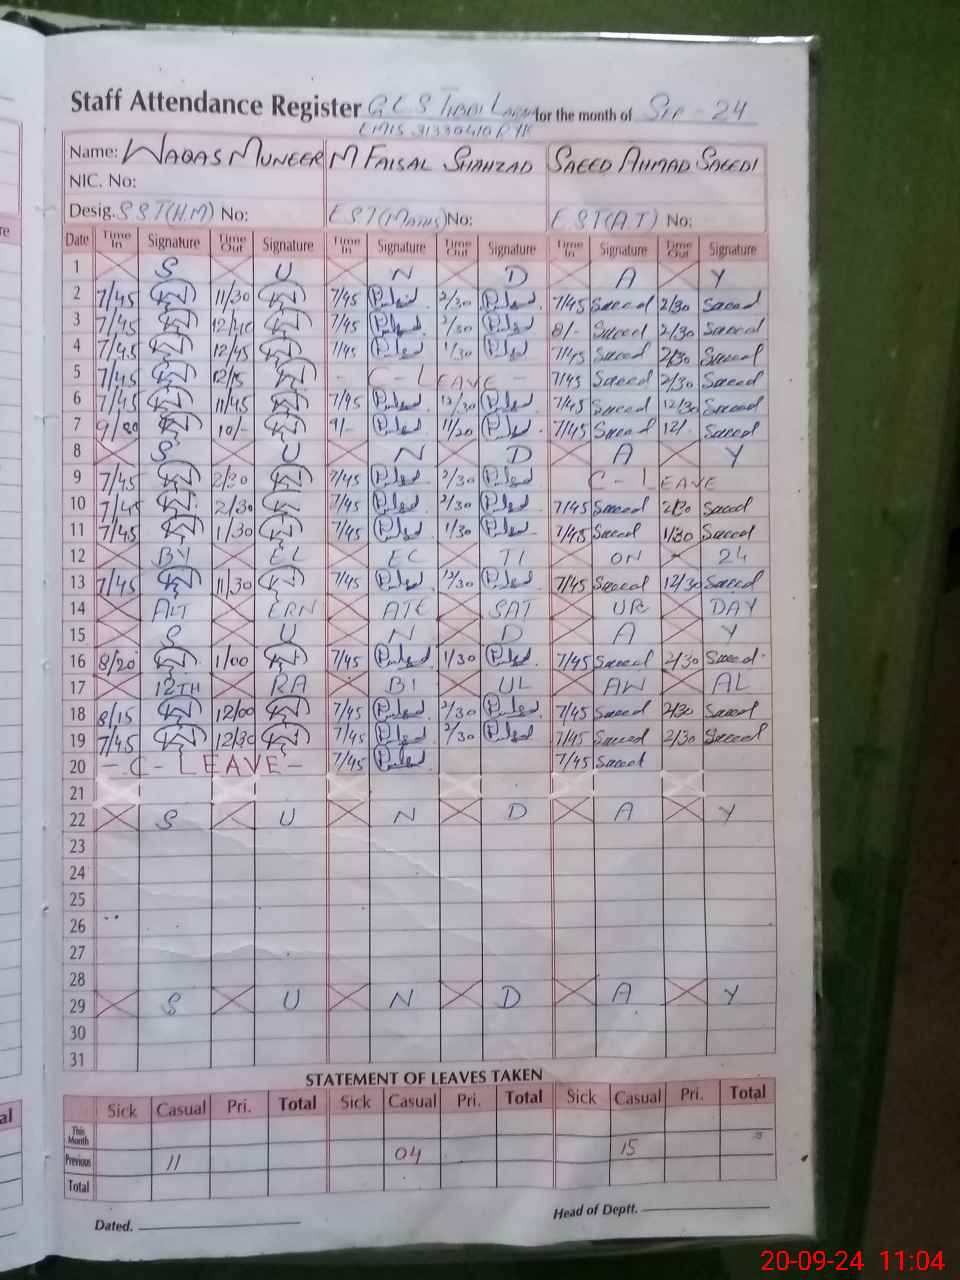 Staff Attendance Register G E S TIBBI LARAN for the month of SEP - 24
EMIS 31330410 RYK
Name: WAQAS MUNEER M FAISAL SHAHZAD SAEED AHMAD SAEEDI
NIC. No:
Desig. SST(H.M) No: EST(MATHS) No: EST(A.T) No:
Date Time In Signature Time Out Signature Time In Signature Time Out Signature Time In Signature Time Out Signature
1 S U N D A Y
2 7/45 11/30 7/45 2/30 7/45 Saeed 2/30 Saeed
3 7/45 12/40 7/45 2/30 8/- Saeed 2/30 Saeed
4 7/45 12/45 7/45 1/30 7/45 Saeed 2/30 Saeed
5 7/45 12/15 - C - LEAVE - 7/45 Saeed 2/30 Saeed
6 7/45 11/45 7/45 12/30 7/45 Saeed 12/30 Saeed
7 10/- 9/- 11/20 7/45 Saeed 12/- Saeed
8 S U N D A Y
9 7/45 2/30 7/45 2/30 C - LEAVE
10 7/45 2/30 7/45 2/30 7/45 Saeed 2/30 Saeed
11 7/45 1/30 7/45 1/30 7/45 Saeed 1/30 Saeed
12 BY EL EC TI ON 24
13 7/45 11/30 7/45 12/30 7/45 Saeed 12/30 Saeed
14 ALT ERN ATE SAT UR DAY
15 S U N D A Y
16 8/20 1/00 7/45 1/30 7/45 Saeed 2/30 Saeed
17 12TH RA BI UL AW AL
18 8/15 12/00 7/45 2/30 7/45 Saeed 2/30 Saeed
19 7/45 12/30 7/45 2/30 7/45 Saeed 2/30 Saeed
20 - C - LEAVE - 7/45 7/45 Saeed
21
22 S U N D A Y
23
24
25
26
27
28
29 S U N D A Y
30
31
STATEMENT OF LEAVES TAKEN
Sick Casual Pri. Total Sick Casual Pri. Total Sick Casual Pri. Total
This Month
Previous 11 04 15
Total
Dated. Head of Deptt.
20-09-24 11:04